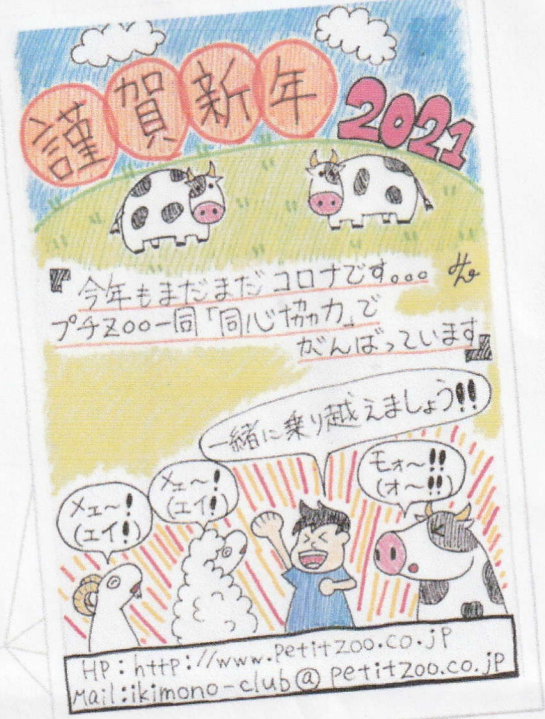 謹賀新年
2021
『今年もまだまだコロナです。。。
プチZoo一同「同心協力」で
がんばっています』
一緒に乗り越えましょう!!
メェ〜!
(エイ!)
メェ〜!
(エイ!)
モォ〜!!
(オ〜!!)
HP:http://www.petitzoo.co.jp
Mail:ikimono-club@petitzoo.co.jp